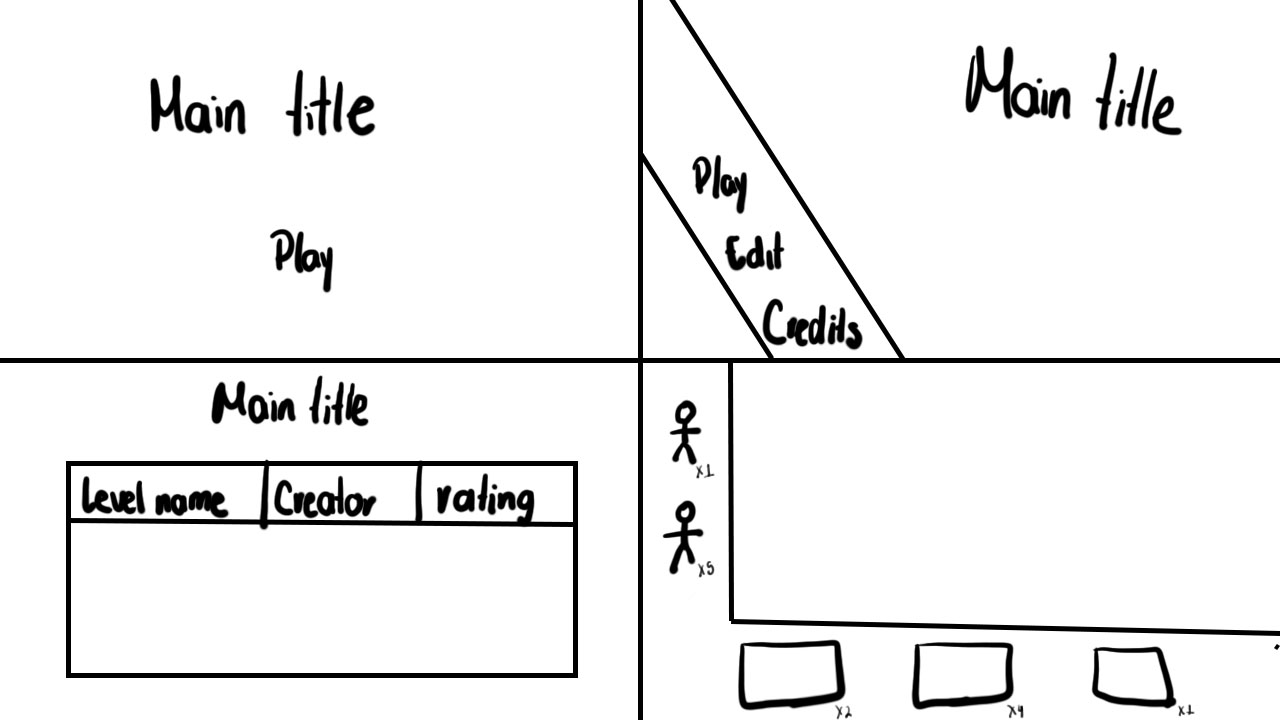 Main title
Play
Main title
Play
Edit
Credits
Main title
Level name Creator rating
x1
x5
x2 x4 x1